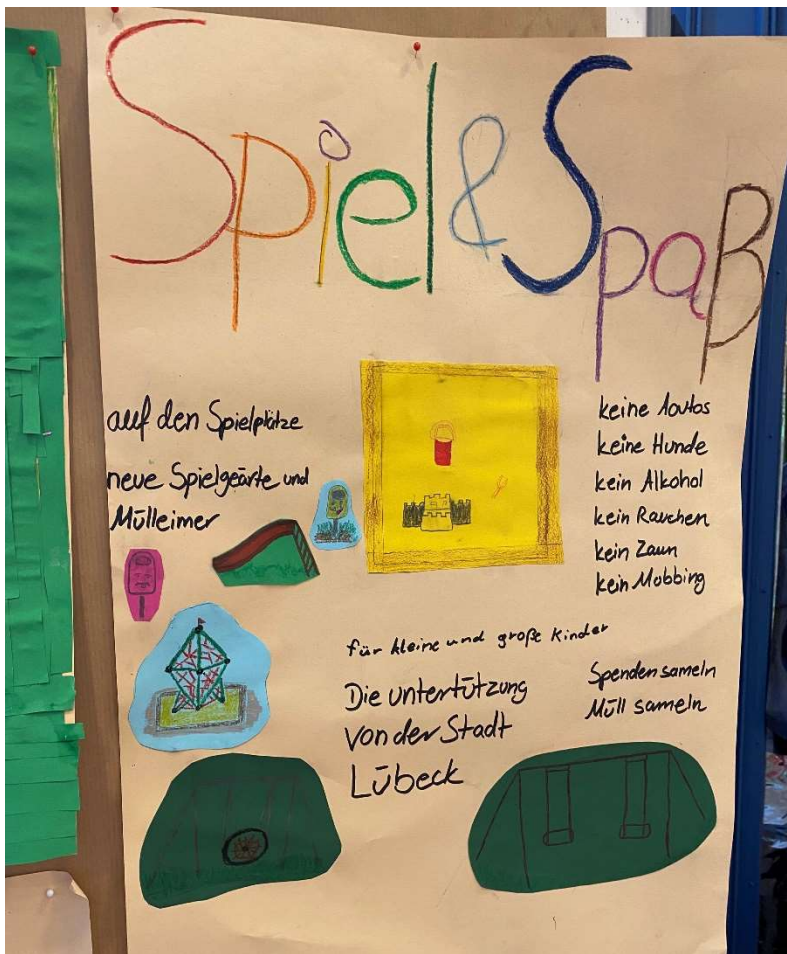 Spiel & Spaß
auf den Spielplätze
neue Spielgeärte und
Mülleimer
keine Aoutos
keine Hunde
kein Alkohol
kein Rauchen
kein Zaun
kein Mobbing
für kleine und große Kinder
Die untertützung
von der Stadt
Lübeck
Spenden sameln
Müll sameln